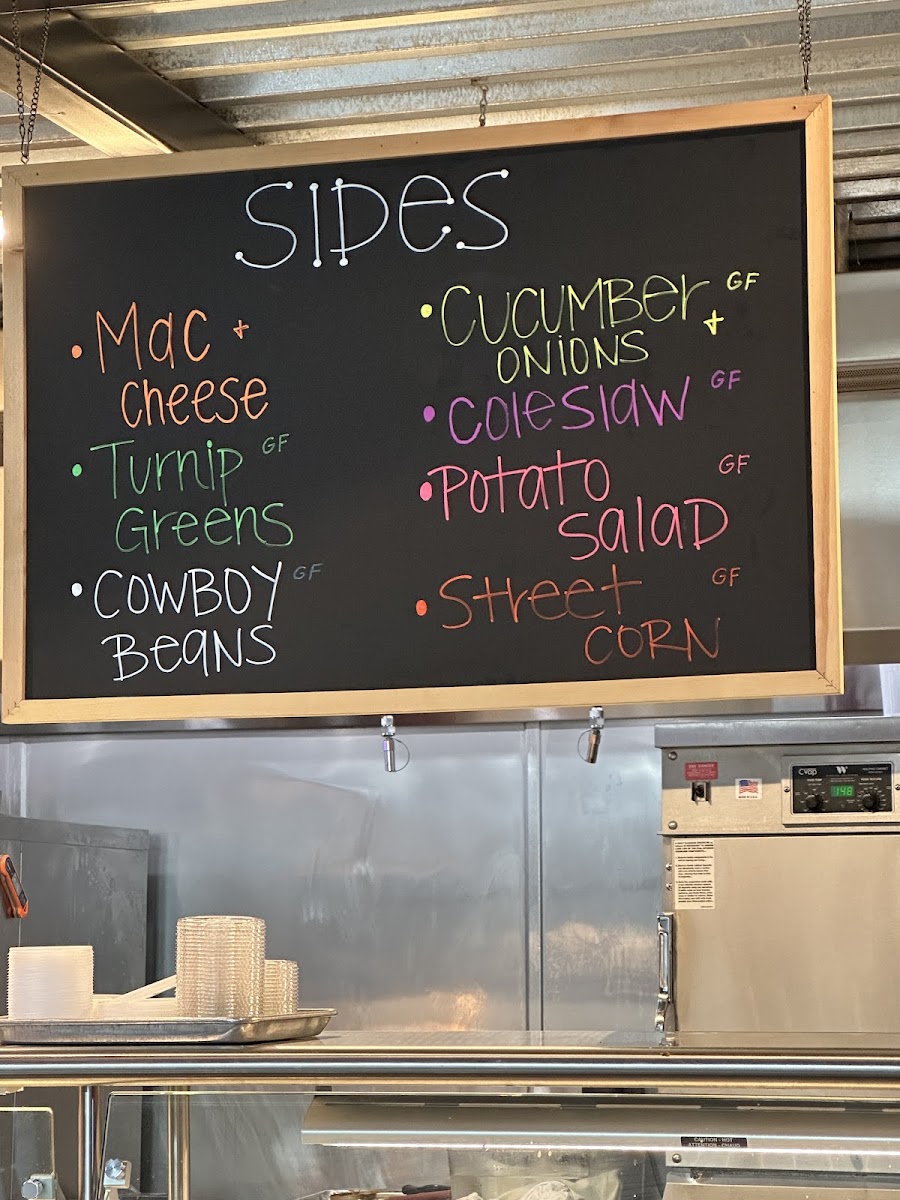 SIDes
• Mac +
cheese
• Turnip GF
Greens
• COWBOY GF
Beans
• CUCUMBer + GF
ONIONS
• Coleslaw GF
• Potato GF
salad
• Street GF
CORN
Cvap
W
148
CAUTION - HOT